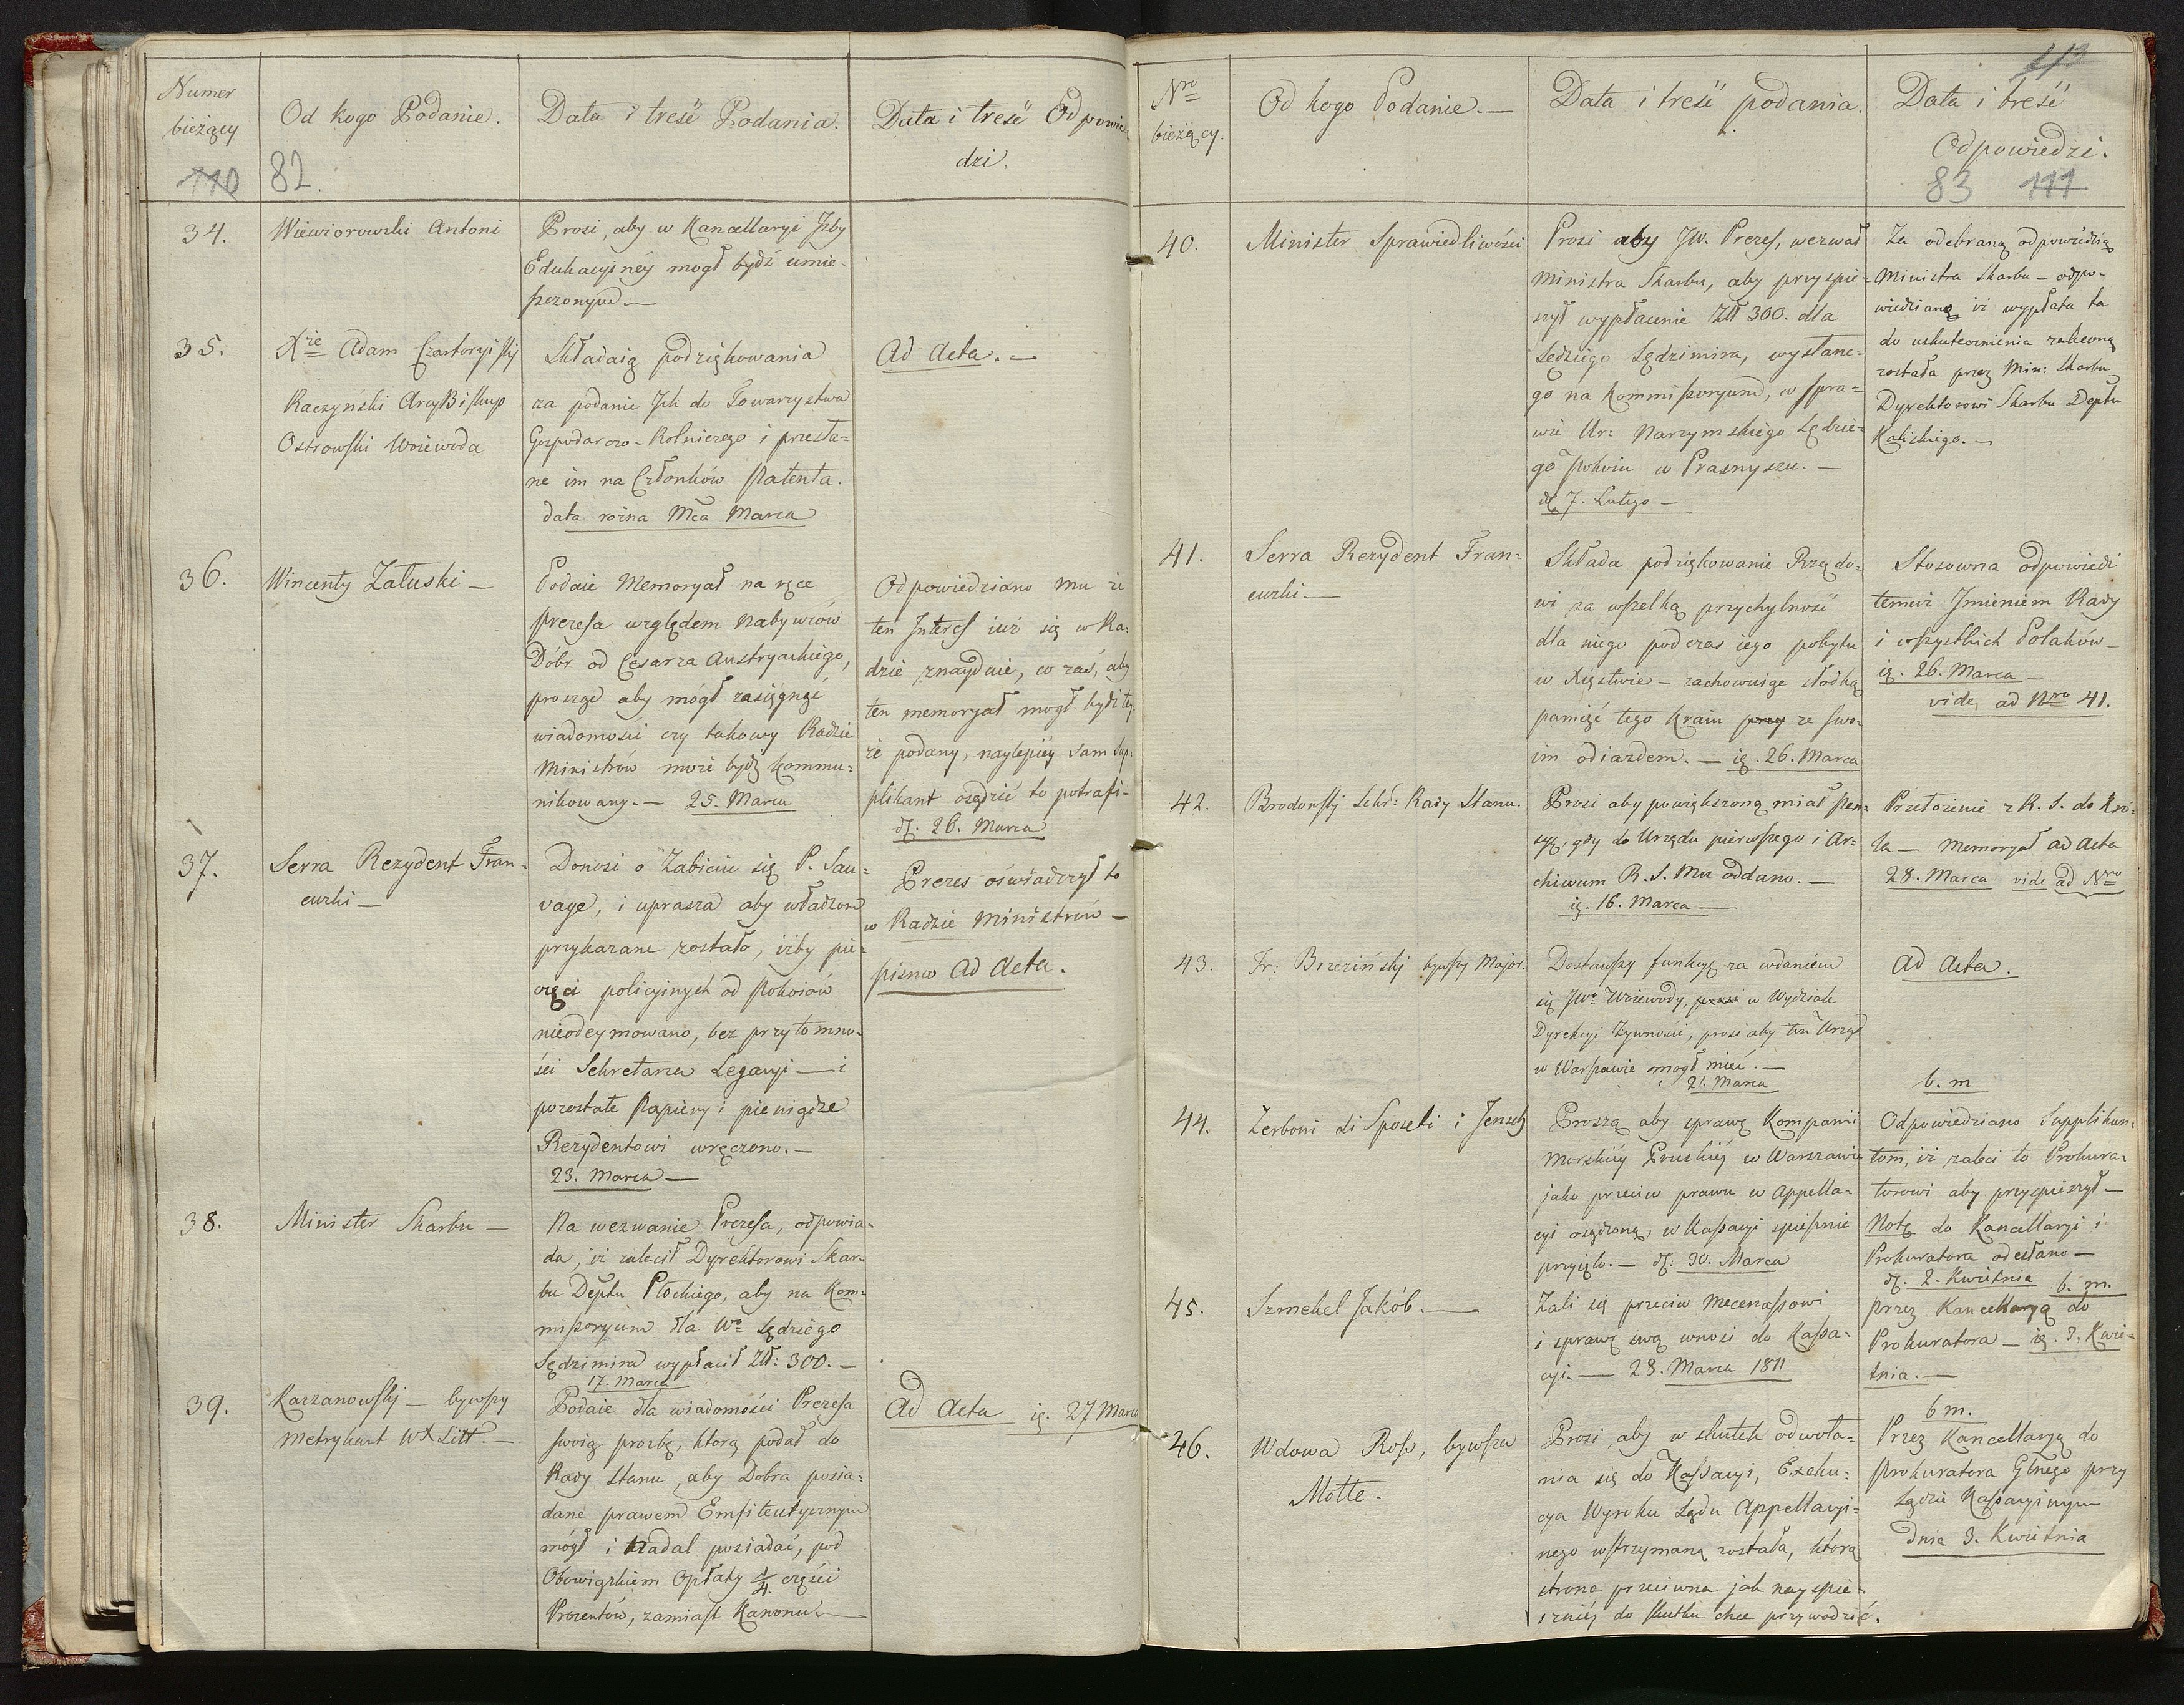 Numer
bieżący
110
Od kogo Podanie.
82.
Data i treść Podania.
Data i treść Odpowie-
dzi.
34.
Wiewiorowski Antoni
Prosi, aby w Kancellaryi Izby
Edukacyinéy mogł bydź umie-
szczonym.—
35.
Xże Adam Czartoryiski
Raczyński ArcyBiskup
Ostrowski Woiewoda
Składaią podziękowania
za podanie Ich do Towarzystwa
Gospodarczo-Rolniczego i przesła=
ne im na Członków Patenta.
data rożna Mca Marca
Ad Acta.—
36.
Wincenty Załuski—
Podaie Memoryał na ręce
Prezesa względem Nabywców
Dóbr od Cesarza Austryackiego,
prosząc aby mógł zasięgnąć
wiadomości czy takowy Radzie
Ministrów może bydź kommu=
nikowany.— 25. Marca
Odpowiedziano mu że
ten Interes iuż się w Ra=
dzie znayduie, co zaś, aby
ten memoryał mogł bydź też
że podany, naylepiéy sam Sup-
plikant osądzić to potrafi-
d. 26. Marca
37.
Serra Rezydent Fran=
cuzki—
Donosi o Zabiciu się P. Sau=
vage, i uprasza aby władzom
przykazane zostało, iżby pie=
częci policyinych od Pokoiów
nieodeymowano, bez przytomno=
ści Sekretarza Legacyi— i
pozostałe Papiery i pieniądze
Rezydentowi wręczono.—
23. Marca—
Prezes oświadczył to
w Radzie Ministrów—
pismo ad Acta.
38.
Minister Skarbu—
Na wezwanie Prezesa, odpowia=
da, iż zalecił Dyrektorowi Skar=
bu Deptu Płockiego, aby na Kom=
missoryum dla Wo Sędziego
Sędzimira wypłacił Zł: 300.—
17. Marca
39.
Kaczanowski— bywszy
Metrykant WX Litt.—
Podaie dla wiadomości Prezesa
swoią prozbę, ktorą podał do
Rady Stanu, aby Dobra posia=
dane prawem Emfiteutycznym
mógł i nadal posiadać, pod
Obowiązkiem Opłaty 1/4. części
Procentów, zamiast Kanonu—
Ad Acta ię. 27 Marca
112
Nro
bieżący.
Od kogo Podanie.—
Data i treść podania.
Data i treść
Odpowiedzi.
83 111
40.
Minister Sprawiedliwości
Prosi aby JW. Prezes, wezwał
Ministra Skarbu, aby przyspie=
szył wypłacenie Zł 300. dla
Sędziego Sędzimira, wysłane=
go na Kommissoryum, w spra=
wie Ur: Narzymskiego Sędzie=
go Pokoiu w Prasnyszu.—
d. 7. Lutego—
Za odebraną odpowiedzią
Ministra Skarbu— odpo=
wiedziano iż wypłata ta
do uskutecznienia zaleconą
została przez Min: Skarbu
Dyrektorowi Skarbu Deptu
Kaliskiego.—
41.
Serra Rezydent Fran=
cuzki—
Składa podziękowanie Rządo=
wi za wszelką przychylność
dla niego podczas iego pobytu
w Xięstwie— zachowuiąc słodką
pamięć tego Kraiu przy ze swo=
im odiazdem.— ię. 26. Marca
Stosowna odpowiedź
temuż Imieniem Rady
i wszystkich Polaków—
ię. 26. Marca—
vide, ad Nro 41.
42.
Brodowski Sekr: Rady Stanu.
Prosi aby powiększoną miał pen=
syą, gdy do Urzędu pierwszego i Ar=
chiwum R. S. Mu oddano.—
ię. 16. Marca—
Przełożenie z R. S. do Kró=
la— Memoryał ad Acta
28. Marca vide ad Nro
43.
Fr: Brzeziński bywszy Major.
Dostawszy funkcyę za wdaniem
się JWo Woiewody, prosi w Wydziale
Dyrekcyi Żywności, prosi aby ten Urząd
w Warszawie mogł mieć.—
21. Marca
Ad Acta.
44.
Zerboni di Sposeti i Jensch
Proszą aby sprawę Kompanii
Morskiéy Pruskiéy w Warszawie
jako przeciw prawu w Appella=
cyi osądzoną, w Kassacyi spiesznie
przyięto.— d. 30. Marca
b. m
Odpowiedziano Supplikan=
tom, iż zaleci to Prokura=
torowi aby przyspieszył—
Notę do Kancellaryi i
Prokuratora odesłano—
d. 2. Kwietnia
45.
Szmekel Jakób.—
Żali się przeciw Mecenassowi
i sprawę swą wnosi do Kassa=
cyi.— 28. Marca 1811
b. m.
przez Kancellaryą do
Prokuratora— ię. 3. Kwie=
tnia.—
46.
Wdowa Ross, bywsza
Motte.
Prosi, aby w skutek odwoła=
nia się do Kassacyi, Exeku=
cya Wyroku Sądu Appellacyi=
nego wstrzymaną została, ktorą
strona przeciwna jak nayspie=
szniéy do skutku chce przywodzić.
b m.
Przez Kancellaryą do
Prokuratora Głnego przy
Sądzie Kassacyinym
dnia 3. Kwietnia